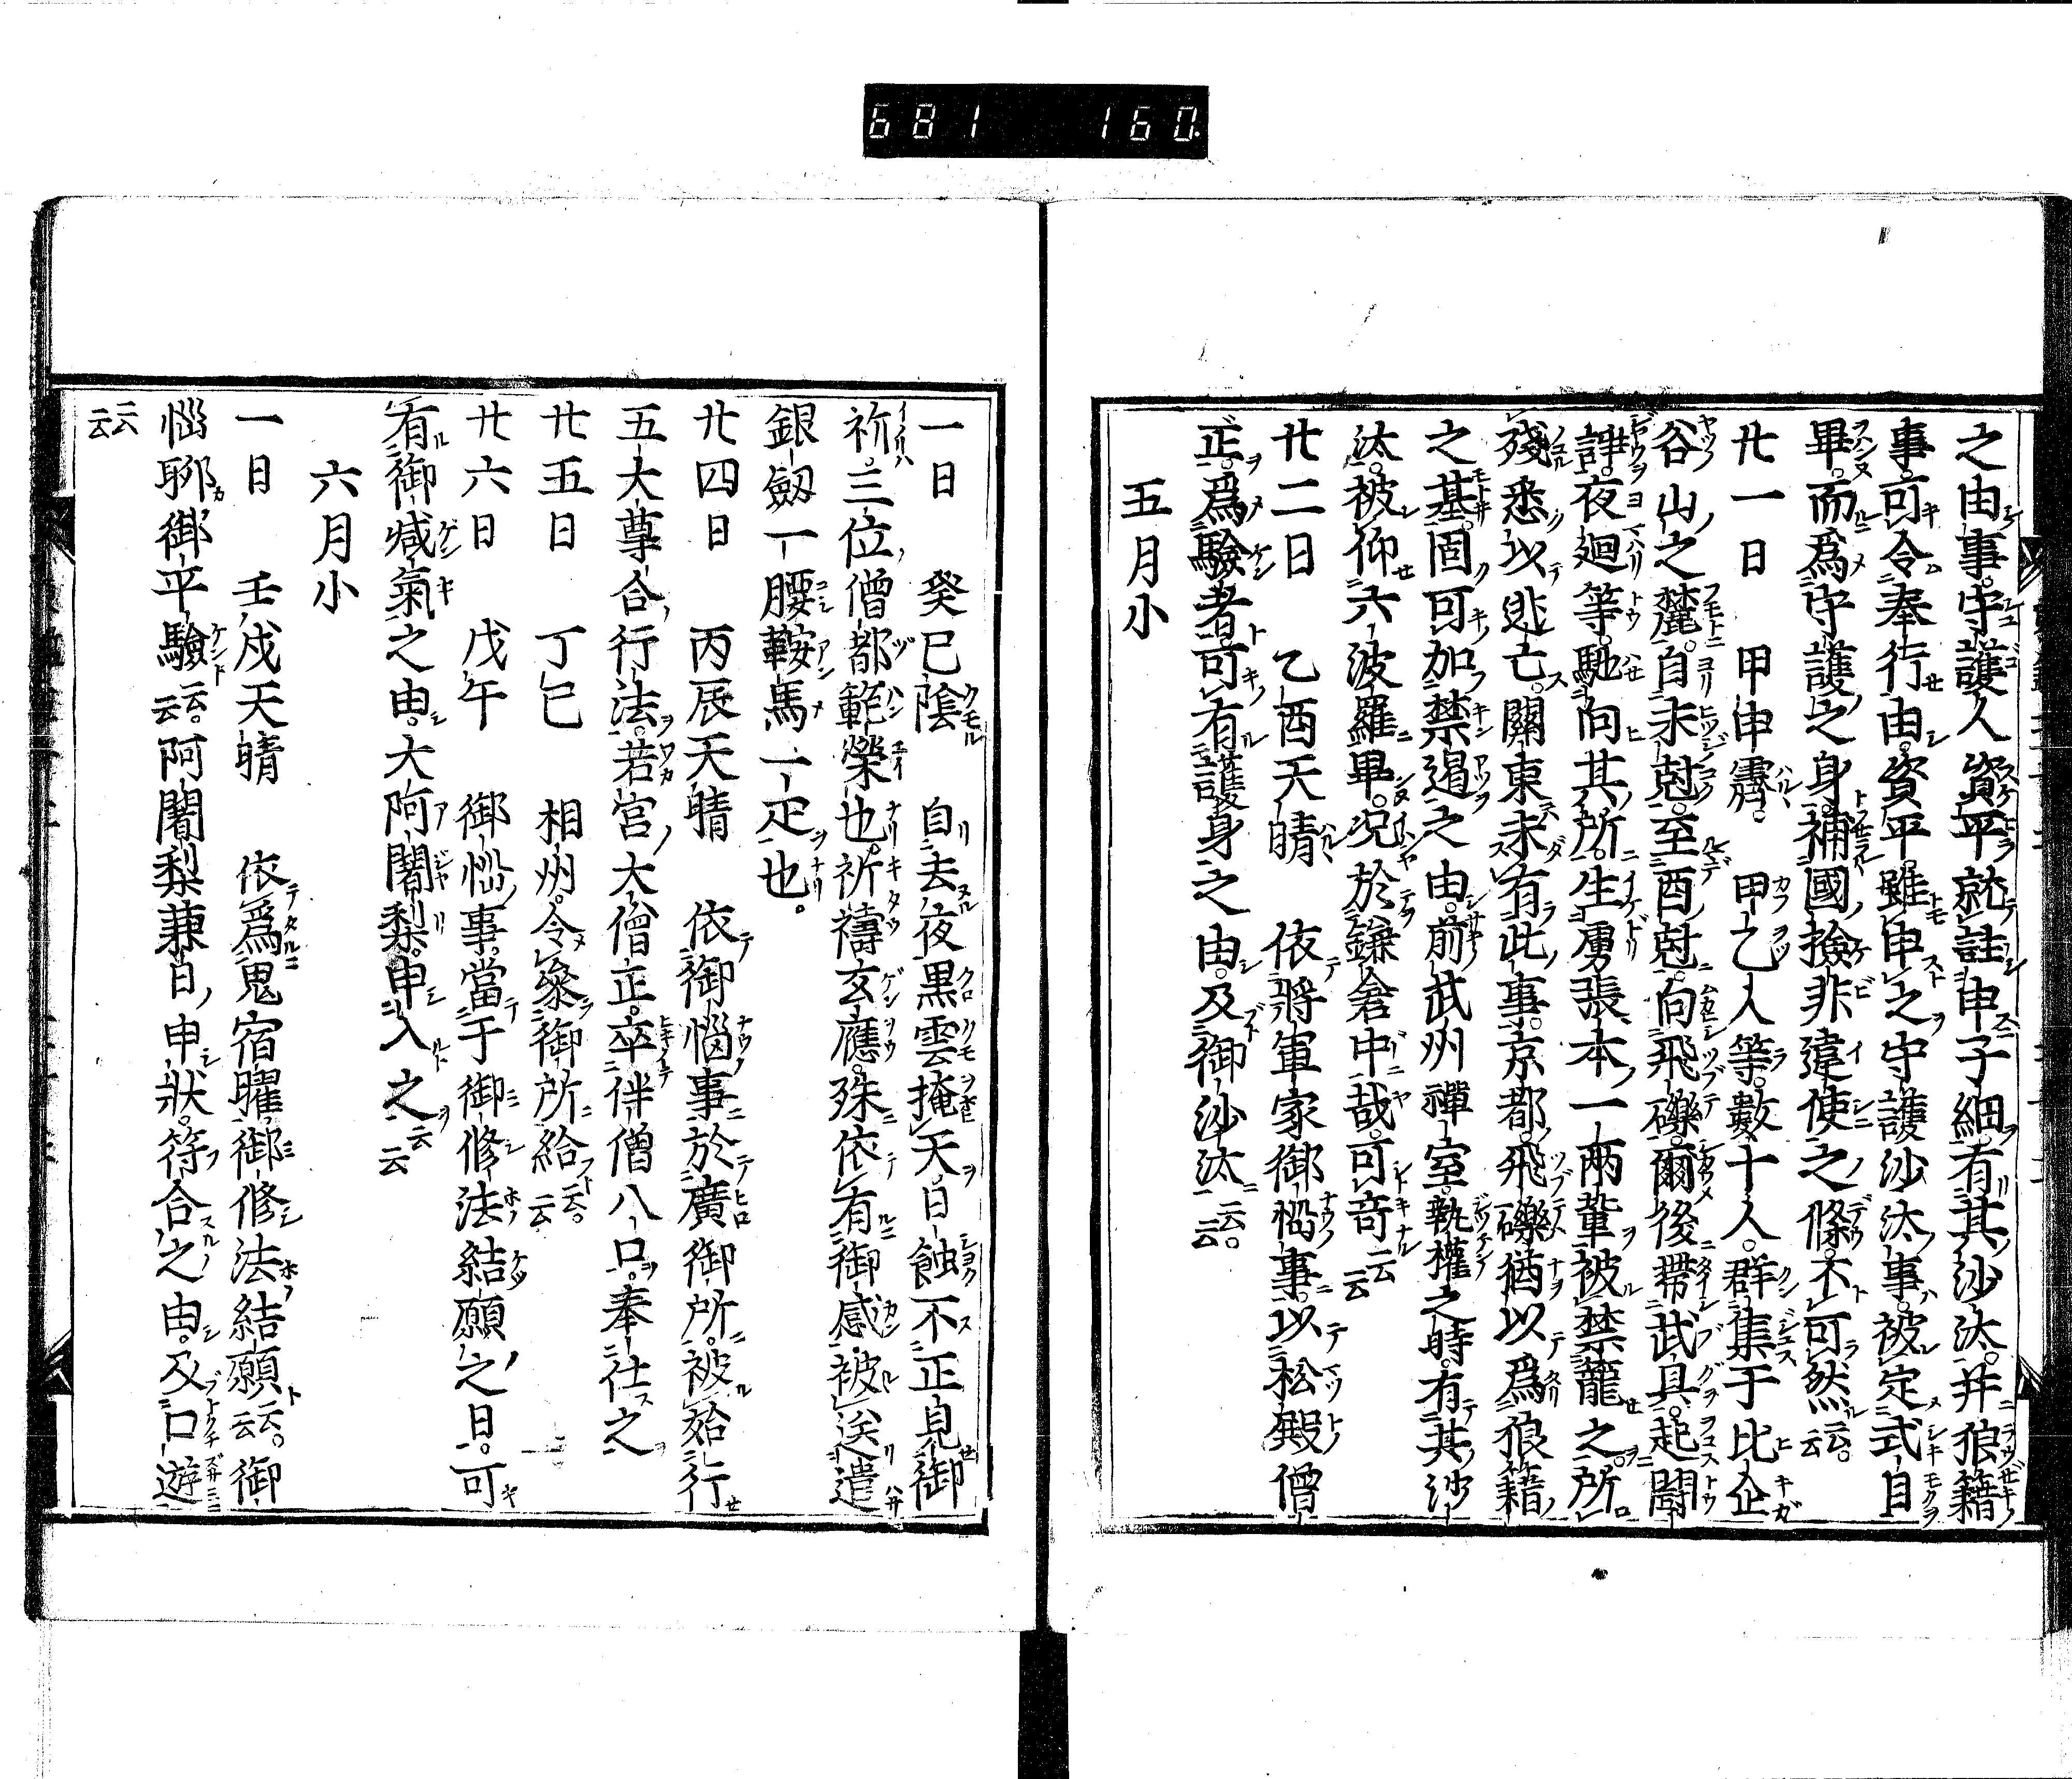 681 160
之由事。守護人資平就註申子細。有其沙汰。并狼籍
事。可令奉行由。資平雖申之守護沙汰事。被定式目
畢。而爲守護之身。補國撿非違使之條。不可然云云。
廿一日 甲申霽。 甲乙人等。數十人。群集于比企
谷山之麓。自未尅。至酉尅。向飛礫。爾後帶武具。起鬪
諍。夜廻等。馳向其所。生虜張本一兩輩被禁籠之。所
殘悉以逃亡。關東未有此事。京都飛礫猶以爲狼籍
之基。固可加禁遏之由。前武州禪室執權之時。有其沙
汰。被仰六波羅畢。况於鎌倉中哉。可奇云云
廿二日 乙酉天晴 依將軍家御惱事。以松殿僧
正。爲驗者。可有護身之由。及御沙汰云云。
五月小
一日 癸巳陰 自去夜黒雲掩天。日蝕不正見御
祈。三位僧都範榮也。祈禱玄應。殊依有御感被送遣
銀劔一腰鞍馬一疋也。
廿四日 丙辰天晴 依御惱事於廣御所。被始行
五大尊合行法。若宮大僧正。卒伴僧八口。奉仕之
廿五日 丁巳 相州。令參御所給云云。
廿六日 戊午 御惱事。當于御修法結願之日。可
有御減氣之由。大阿闍梨。申入之云云
六月小
一日 壬戌天晴 依爲鬼宿曜御修法結願云云。御
惱聊御平驗云云。阿闍梨兼日申狀。符合之由。及口遊
云云